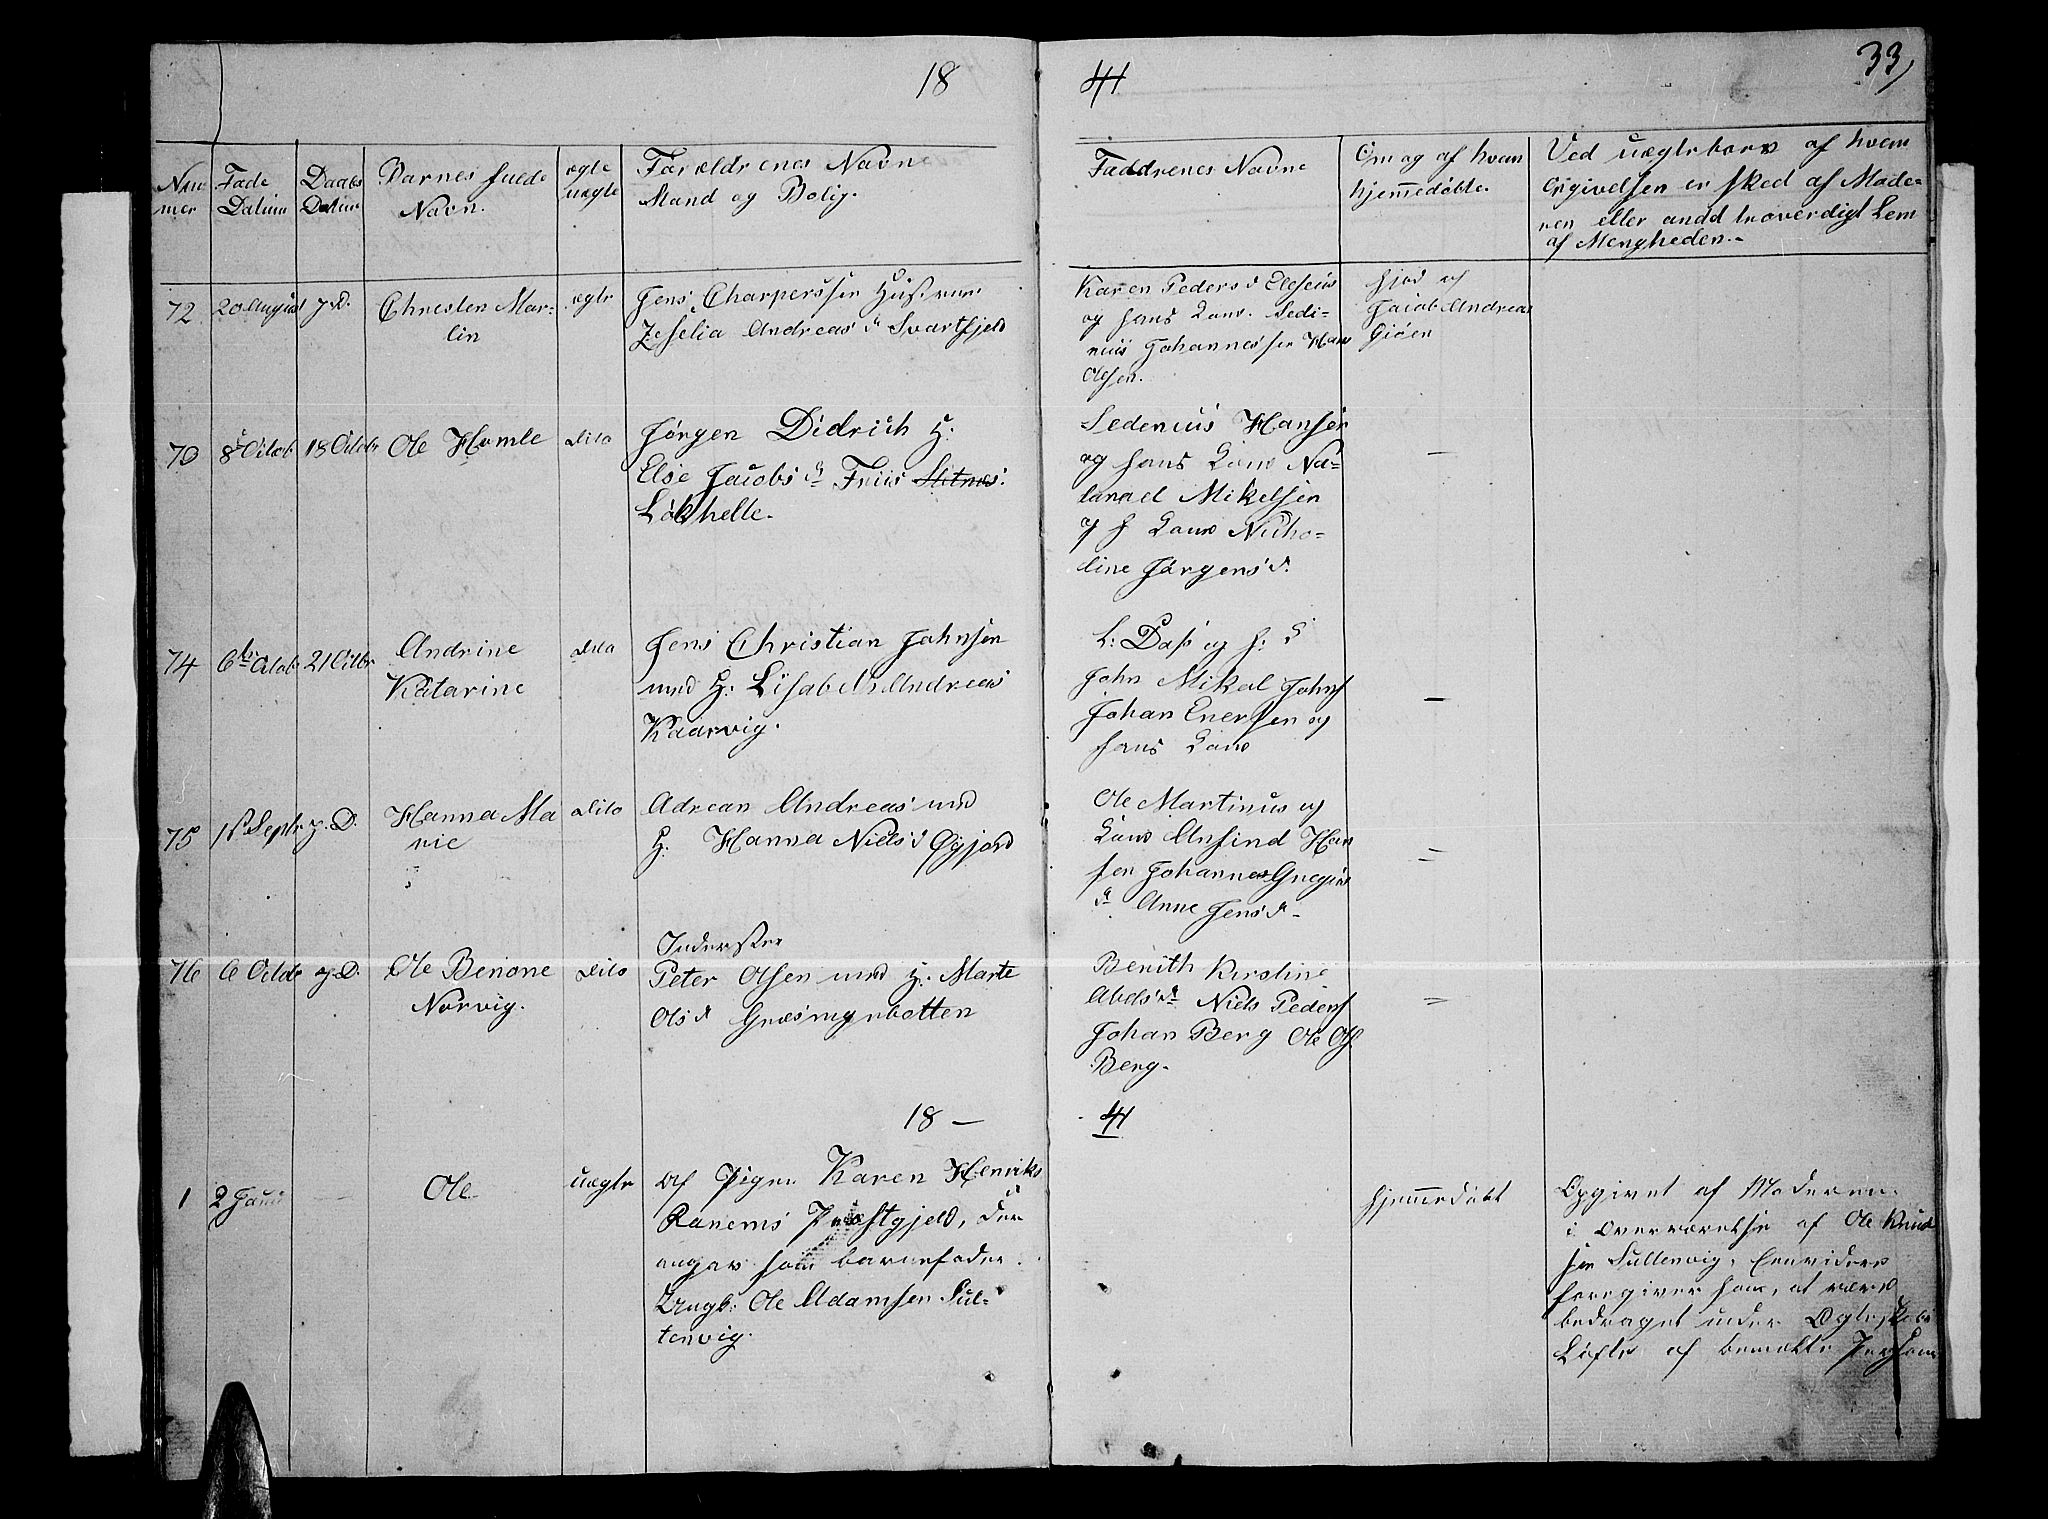 18 41
33
Num
mer
Føde
Datum
Daabs
Datum
Barnes fulde
Navn.
ægte
uægte
Forældrenes Navne
Stand og Bolig.
Faddrenes Navne
Om og af hvem
hjemmedøbte.
Ved uægte børn af hvem
Opgivelsen er sked af Mode-
ren eller andet troverdigt Lem
af Mengheden.-
72
20 August
J. D.
Christen Mar-
tin
ægte
Jens Charperssen Hustrue
Zesselia Andreas d Svartfjeld
Karen Peders d
og hans Kone. Sedi-
nius Johannessen Hans
Olsen.
hjed af
Jacob Andreas
Giøen
70
8 Octob
18 Octobr
Ole Homle
dito
Jørgen Didrich H:
Else Jacobs d Friis Stitnæs:
Løkhelle.
Sedenius Hansen
og hans Kone Na-
tanael Mikelsen
og h Kone Nicho-
line Jørgens d.
-
74
6te Octob
21 Octbr
Andrine
Katarine
dito
Jens Christian Johnsen
med H: Lisabet Andreas
Kaarvig.
L: Dass og h: K
John Mikal Johns
Johan Enersen og
hans Kone
-
75
1st Septr
J. D.
Hanna Ma
rie
dito
Adrean Andreas med
H: Hanna Niels d Øgjord
Ole Martinus og
Kone Ansind Han
sen Johanna
d Anne Jens d-
=
76
6 Octbr
J. D.
Ole Benone
Norvig.
dito
Inderster
Peter Olsen med H: Marte
Ols d Græsmyrbotten
Benith Kirstine
Abels d Niels Peders
Johan Berg Ole Ols
Berg.
=
18 - 41
1
2 Janu
-
Ole
uægte
Af Pigen Karen Henriks
Ranems Præstgjeld, der
angav som barnefader
Ungk: Ole Adamsen Sul-
tenvig.
hjemmedøbt
Opgivet af Moderen
i Overværelse af Ole Knud
sen Sultenvig, Envidere
foregiver hun, at være
bedraget under Ægteskabs
Løfte af bemelte Person